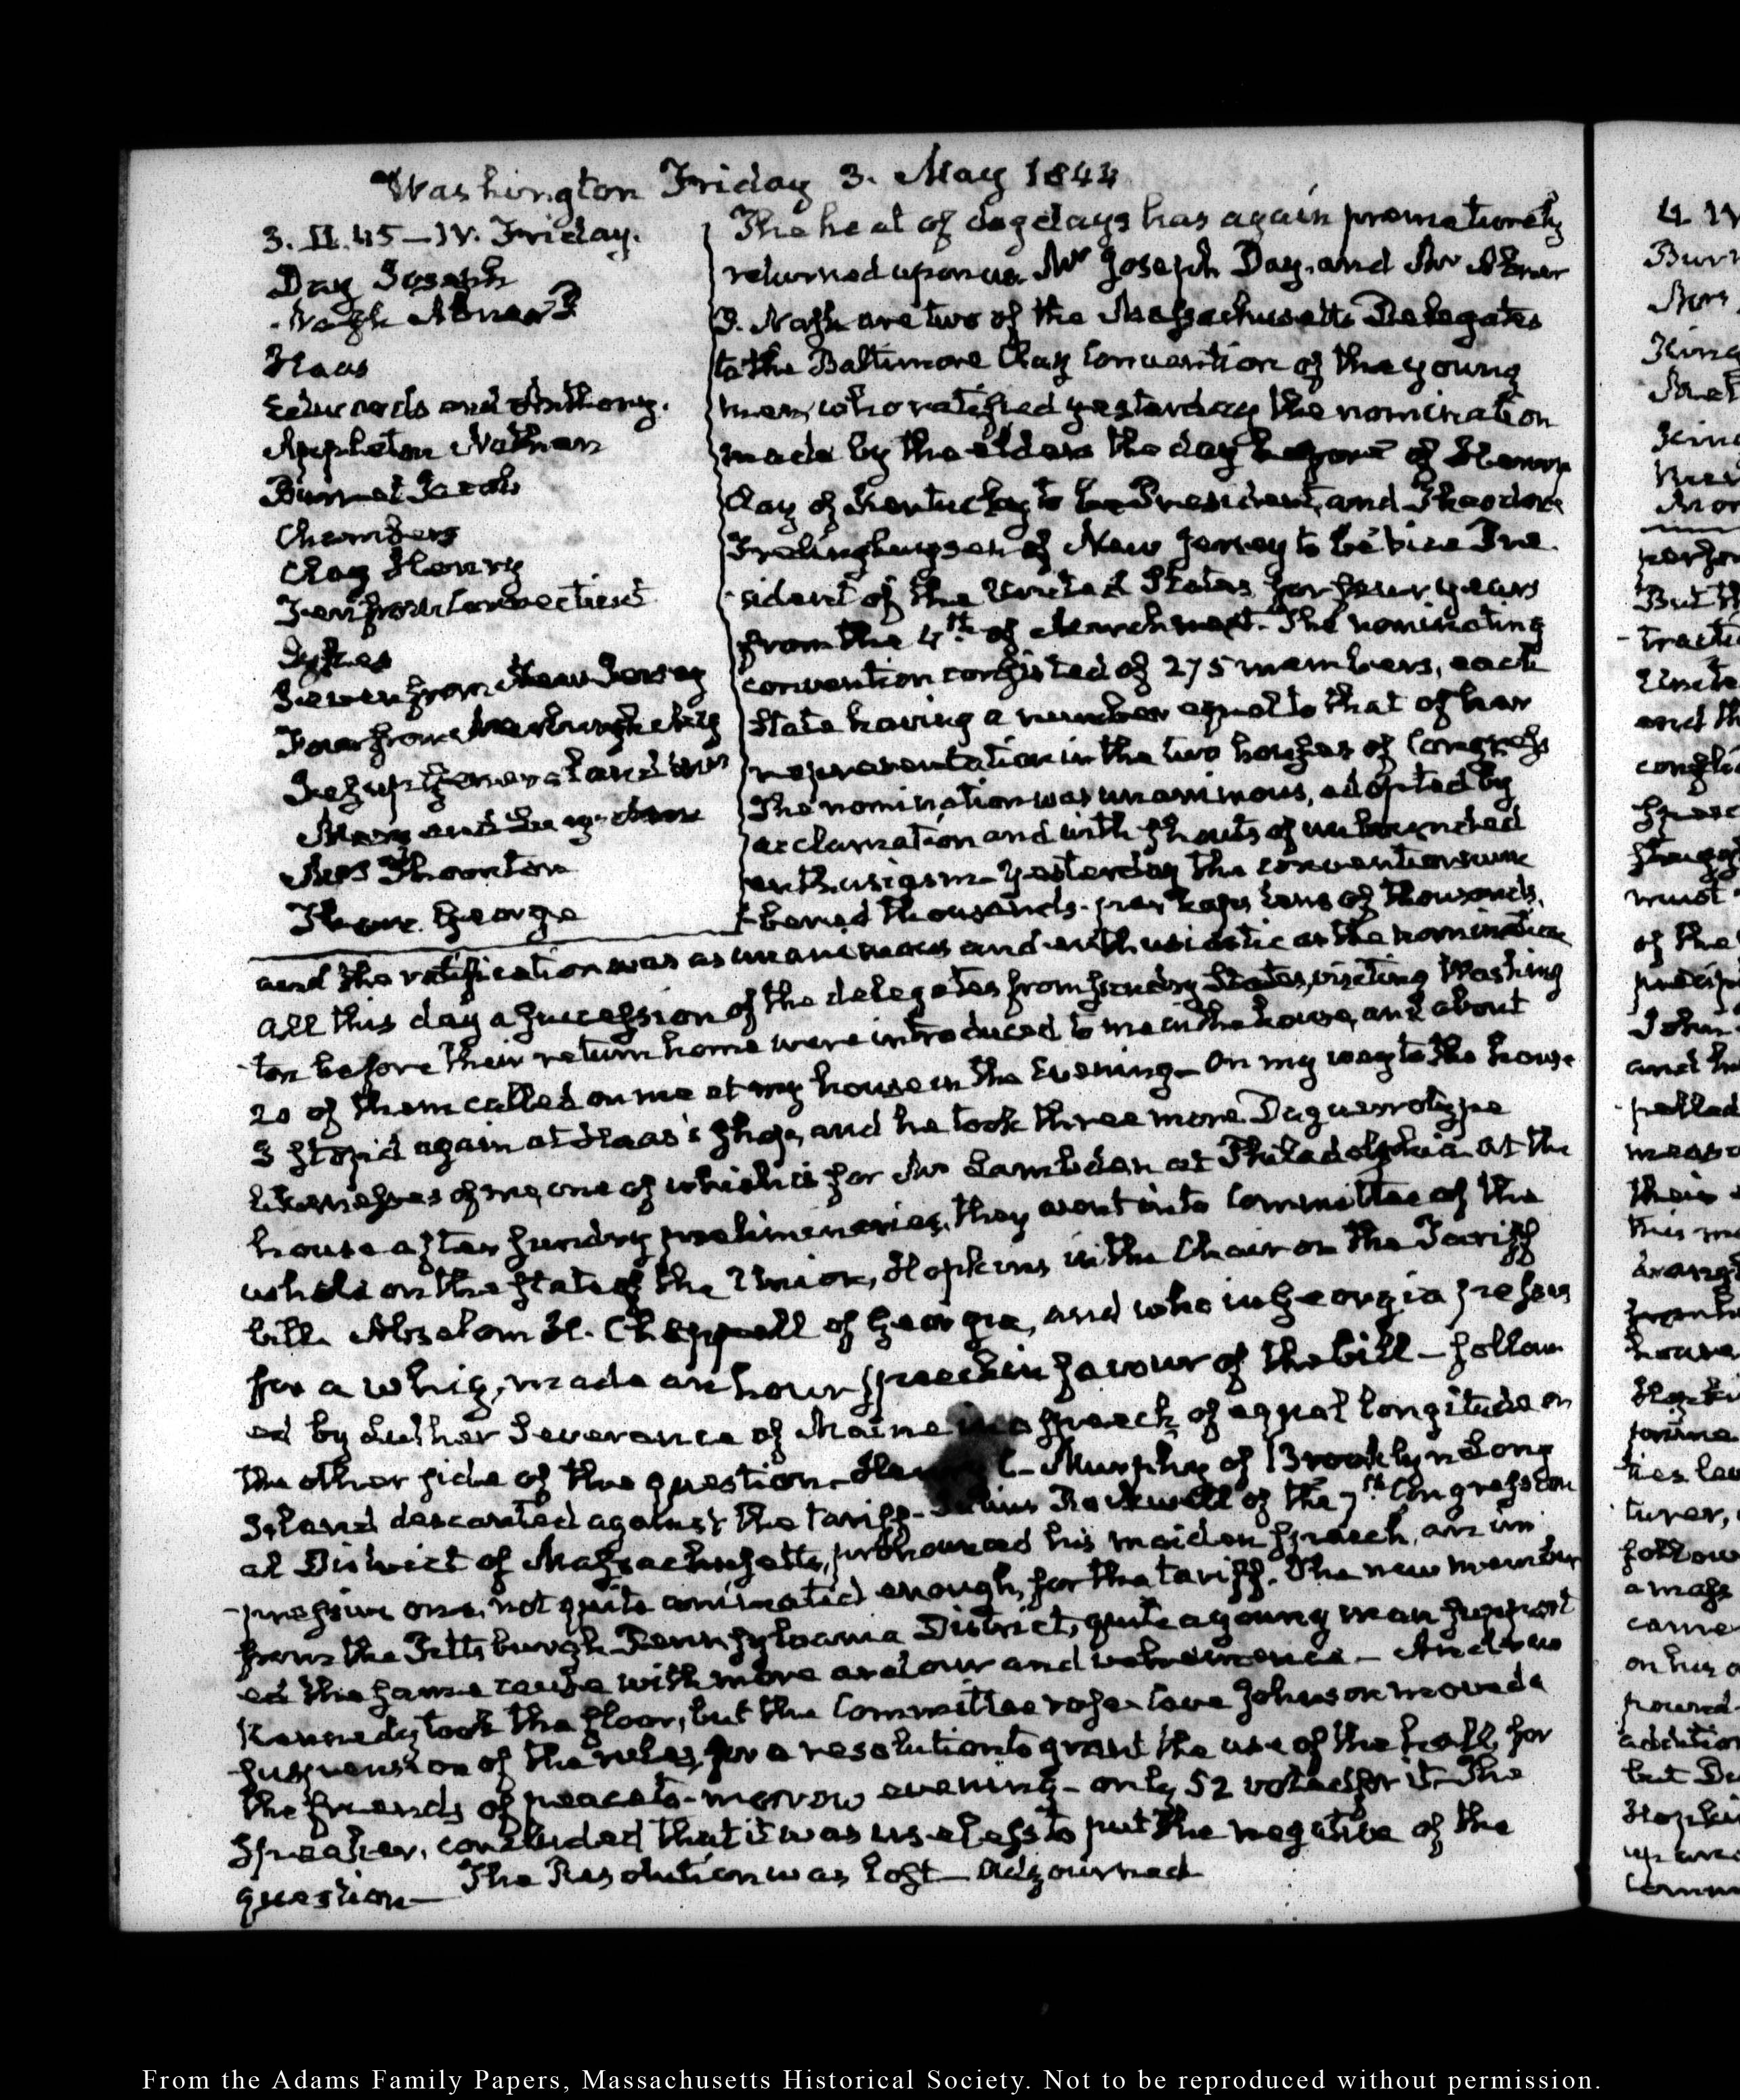 Washington Friday 3. May 1844
3. II.45—IV. Friday.
Day Joseph
Nash Abner P
Haas
Edwards and Anthony.
Appleton Nathan
Burnet Jacob
Chambers
Clay Henry
Ten from Connecticut
Sykes
Seven from New Jersey
Four from
Jesup General and
Mary and
Mrs Thornton
George
The heat of dog days has again prematurely
returned upon us. Mr Joseph Day, and Mr Abner
P. Nash are two of the Massachusetts Delegates
to the Baltimore Clay Convention of the young
men, who ratified yesterday the nomination
made by the elders the day before of Henry
Clay of Kentucky to be President, and Theodore
Frelinghuysen of New Jersey to be Vice Pre-
-sident of the United States for four years
from the 4th of March next. The nominating
convention consisted of 275 members, each
State having a number equal to that of her
representation in the two houses of Congress
The nomination was unanimous, adopted by
acclamation and with shouts of unbounded
enthusiasm—Yesterday the convention num
bered thousands—perhaps tens of thousands,
and the ratification was as unanimous and enthusiastic as the nomination
All this day a succession of the delegates from sundry States, visiting Washing
-ton before their return home were introduced to me in the house, and about
20 of them called on me at my house in the Evening—On my way to the house
I stop'd again at Haas's shop, and he took three more Daguerrotype
likenesses of me, one of which is for Mr Lambdin at Philadelphia. At the
house after sundry preliminaries, they went into Committee of the
whole on the state of the Union, Hopkins in the Chair on the Tariff
bill. Absalom H. Chappell of Georgia, and who in Georgia passes
for a whig, made an hour speech in favour of the bill—follow
ed by Luther Severance of Maine in a speech of equal longitude on
the other side of the question—Henry C. Murphy of Brooklyn Long
Island descanted against the tariff—Julius Rockwell of the 7th Congression
al District of Massachusetts, pronounced his maiden speech, an im
-pressive one, not quite animated enough, for the tariff. The new member
from the Pittsburgh Pennsylvania District, quite a young man support
ed the same cause with more ardour and vehemence—Andrew
Kennedy took the floor, but the Committee rose. Cave Johnson moved a
suspension of the rules, for a resolution to grant the use of the hall, for
the friends of peace to-morrow evening—only 52 voted for it—The
Speaker, concluded that it was useless to put the negative of the
question—The Resolution was lost—Adjourned
From the Adams Family Papers, Massachusetts Historical Society. Not to be reproduced without permission.